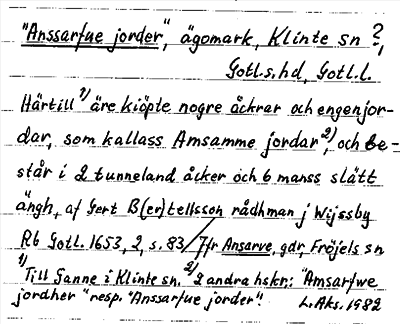 "Anssarfue jorder", ägomark, Klinte sn ?,
Gotl.s.hd, Gotl.l.
Härtill 1) äre kiöpte nogre åckrar och engenjor-
dar, som kallass Amsamme jordar 2), och be-
står i 2 tunneland åcker och 6 manss slätt
ängh, af Gert B(er)tellsson rådhman j Wijssby
Rb Gotl. 1653, 2, s. 83 / Jfr Ansarve, gdr, Fröjels sn
1) Till Ganne i Klinte sn. 2) 2 andra hskr: "Amsarfwe
jordher" resp. "Anssarfue jorder".
L. Aks. 1982